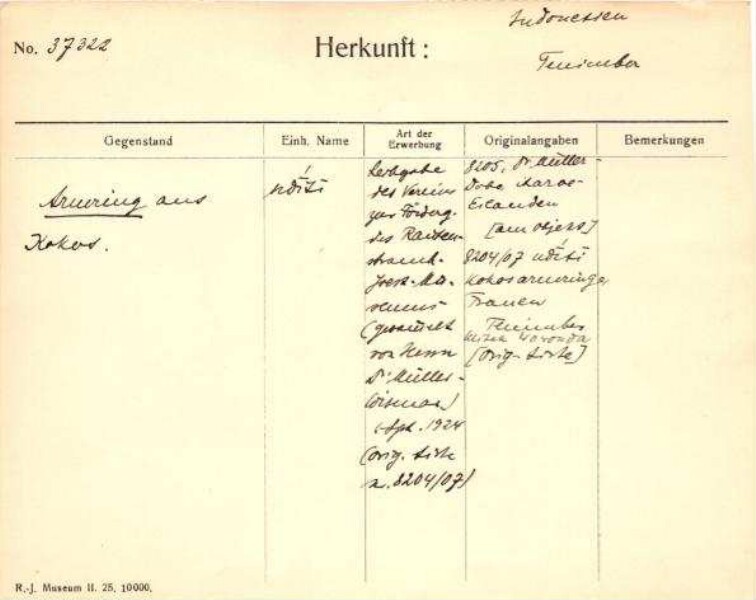 Indonesien
No. 37322 Herkunft:
Tenimber
Gegenstand
Einh. Name
Art der
Erwerbung
Originalangaben
Bemerkungen
Armring aus
Kokos.
ndíti
Leihgabe
des Vereins
zur Förderg.
des Rauten-
strauch-
Joest-Mu-
seums
(gesammelt
von Herrn
Dr. Müller-
Wismar)
Sept. 1924
(orig. Liste
n. 8204/07)
8205, Dr. Müller-
Dobo Aaroe-
Eilanden
[am Objekt]
8204/07 ndíti
Kokosarmringe
Frauen
Tenimber
[Orig. Liste]
R.-J. Museum II. 25. 10000.